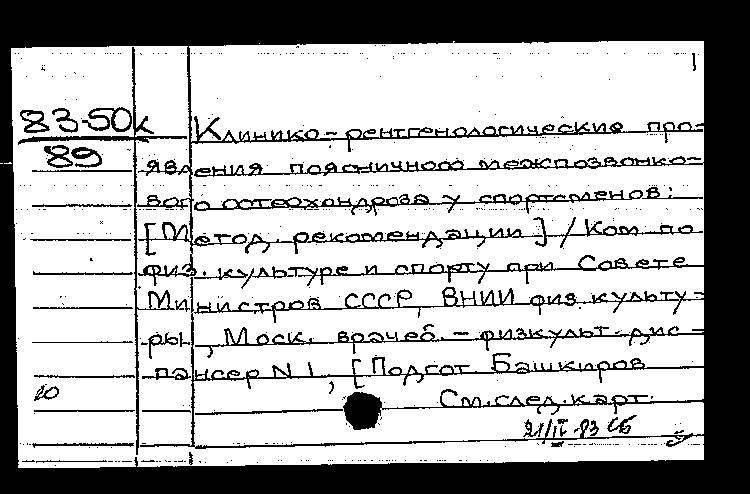 1
83-50к Клинико-рентгенологические про-
89 явления поясничного межпозвонко-
вого остеохондроза у спортсменов:
[Метод. рекомендации] / Ком по
физ. культуре и спорту при Совете
Министров СССР, ВНИИ физ. культу-
ры, Моск. врачеб.-физкульт. дис-
пансер N 1, [Подгот Башкиров
20 См. след. карт.
21/IV-83 СБ